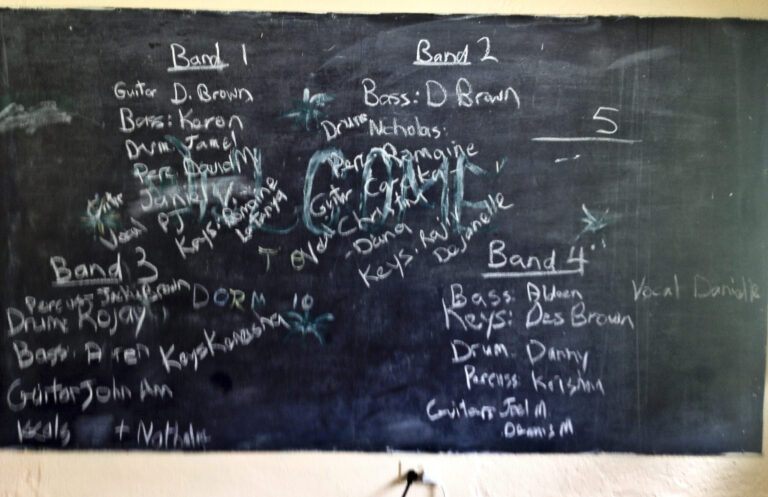 Band 1
Guitar D. Brown
Bass: Karen
Drum Jamel
Perc David M
Guitar
Vocal PJ
Keys: Romaine
Latanya
Band 2
Bass: D Brown
Drum Nicholas
Perc Romaine
Guitar
Vocal Christina
- Dana
Keys. Ravi
Dejanelle
WELCOME
TO
DORM 10
5
Band 3
Percuss Brown
Drum Rojay
Bass. Keys Kenesha
Guitar John Am
+ Nathalie
Band 4
Bass: Aldeen
Keys: Des Brown
Drum Danny
Percuss Krishna
Guitars Joel M.
Dennis M
Vocal Danielle